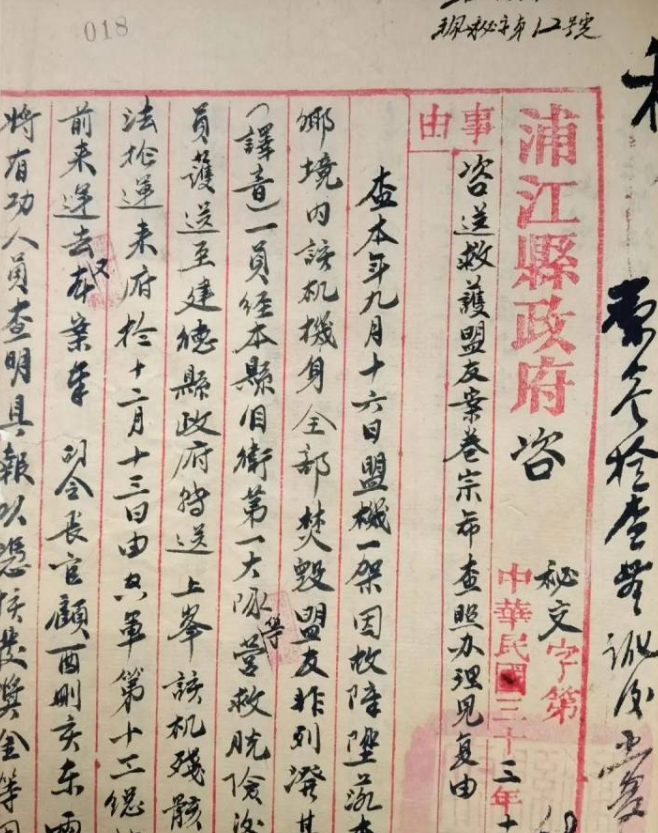 018
秘字第12號
浦江縣政府 咨
秘文字第
中華民國三十三年十
事由
咨送救護盟友案卷宗希查照办理見复由
查本年九月十六日盟機一架因故障墜落本
鄉境内該机機身全部焚毀盟友非列潑其
(譯音)一員経本縣自衛第一大隊等營救脱險後
員護送至建德縣政府轉送上峯該机殘骸
法捡運来府於十二月十三日由空軍第十工總
前来運去又本案奉司令長官顧酉刪亥东
將有功人員查明具報以憑核發獎金等